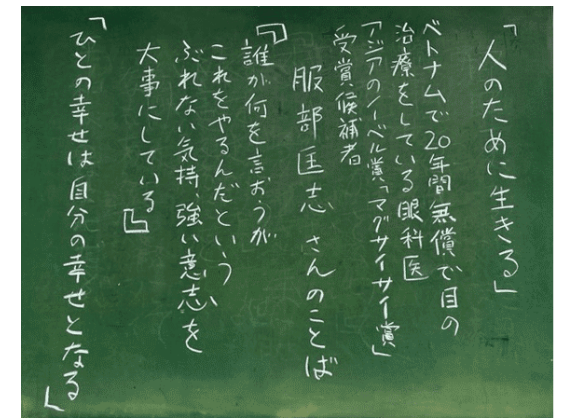 「人のために生きる」
ベトナムで20年間無償で目の
治療をしている眼科医
「アジアのノーベル賞「マグサイサイ賞」
受賞候補者
服部匡志さんのことば
『誰が何を言おうが
これをやるんだという
ぶれない気持、強い意志を
大事にしている』
「ひとの幸せは自分の幸せとなる」